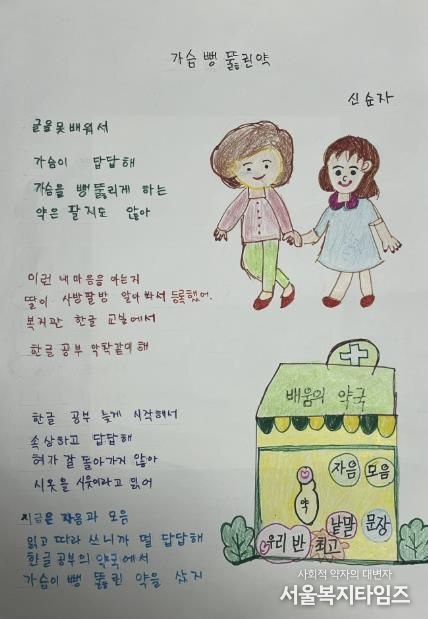 가슴 뻥 뚫린약
신순자
글을 못 배워서
가슴이 답답해
가슴을 뻥 뚫리게 하는
약은 팔지도 않아
이런 내마음을 아는지
딸이 사방팔방 알아봐서 등록했어.
복지관 한글 교실에서
한글 공부 악착같이 해
한글 공부 늦게 시작해서
속상하고 답답해
혀가 잘 돌아가지 않아
시옷을 시웃이라고 읽어
지금은 자음과 모음
읽고 따라 쓰니까 덜 답답해
한글공부의 약국에서
가슴이 뻥 뚫린 약을 샀지
배움의 약국
자음 모음
약
낱말 문장
우리 반 최고
사회적 약자의 대변자
서울복지타임즈